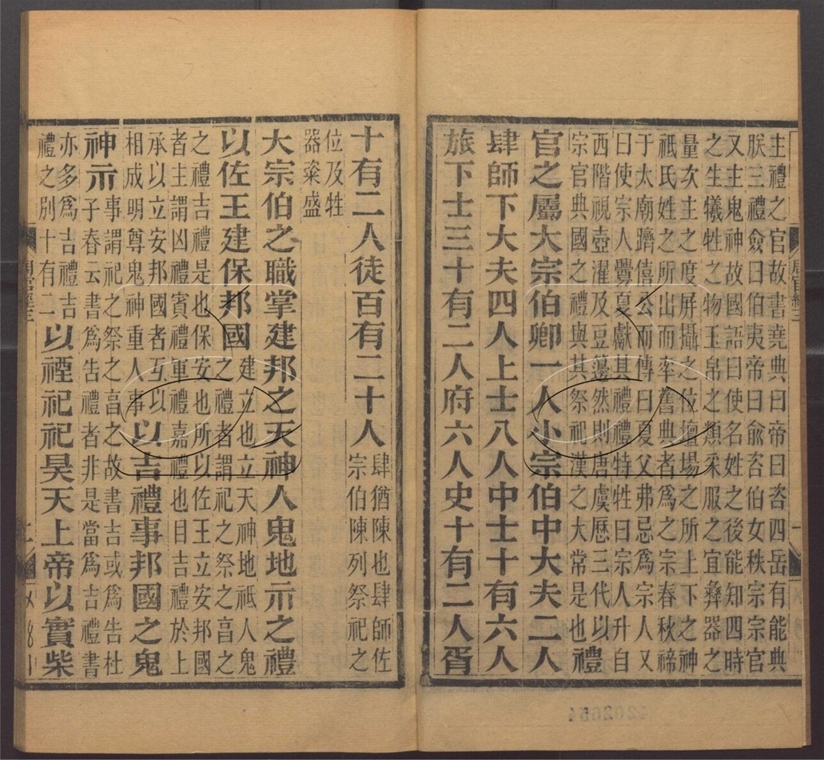 主禮之官故書堯典曰帝曰咨四岳有能典
朕三禮僉曰伯夷帝曰俞咨伯女秩宗宗官
又主鬼神故國語曰使名姓之後能知四時
之生犧牲之物玉帛之類采服之宜彝器之
量次主之度屏攝之位壇場之所上下之神
祗氏姓之所出而率舊典者爲之宗春秋禘
于太廟躋僖公而傳曰夏父弗忌爲宗人又
曰使宗人釁夏獻其禮禮特牲曰宗人升自
西階視壺濯及豆籩然則唐虞歷三代以
宗官典國之禮與其祭祀漢之大常是也禮
官之屬大宗伯卿一人小宗伯中大夫二人
肆師下大夫四人上士八人中士十有六人
旅下士三十有二人府六人史十有二人胥
十有二人徒百有二十人肆猶陳也肆師佐宗伯陳列祭祀之
位及牲
器粢盛
大宗伯之職掌建邦之天神人鬼地示之禮
以佐王建保邦國建立也立天神地祇人鬼之禮者謂祀之祭之享之
之禮吉禮是也保安也所以佐王立安邦國
者主謂凶禮賓禮軍禮嘉禮也目吉禮於上
承以立安邦國者互以
相成明尊鬼神重人事以吉禮事邦國之鬼
神示事謂祀之祭之享之故書吉或爲告杜子春云書爲告禮者非是當爲吉禮書
亦多爲吉禮吉
禮之別十有二以禋祀祀昊天上帝以實柴